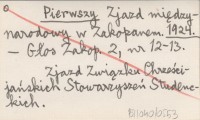 Pierwszy Zjazd między-
narodowy w Zakopanem. 1924.
— Głos Zakop. 2, nr 12-13.
Zjazd Związku Chrześci-
jańskich Stowarzyszeń Studenc-
kich.